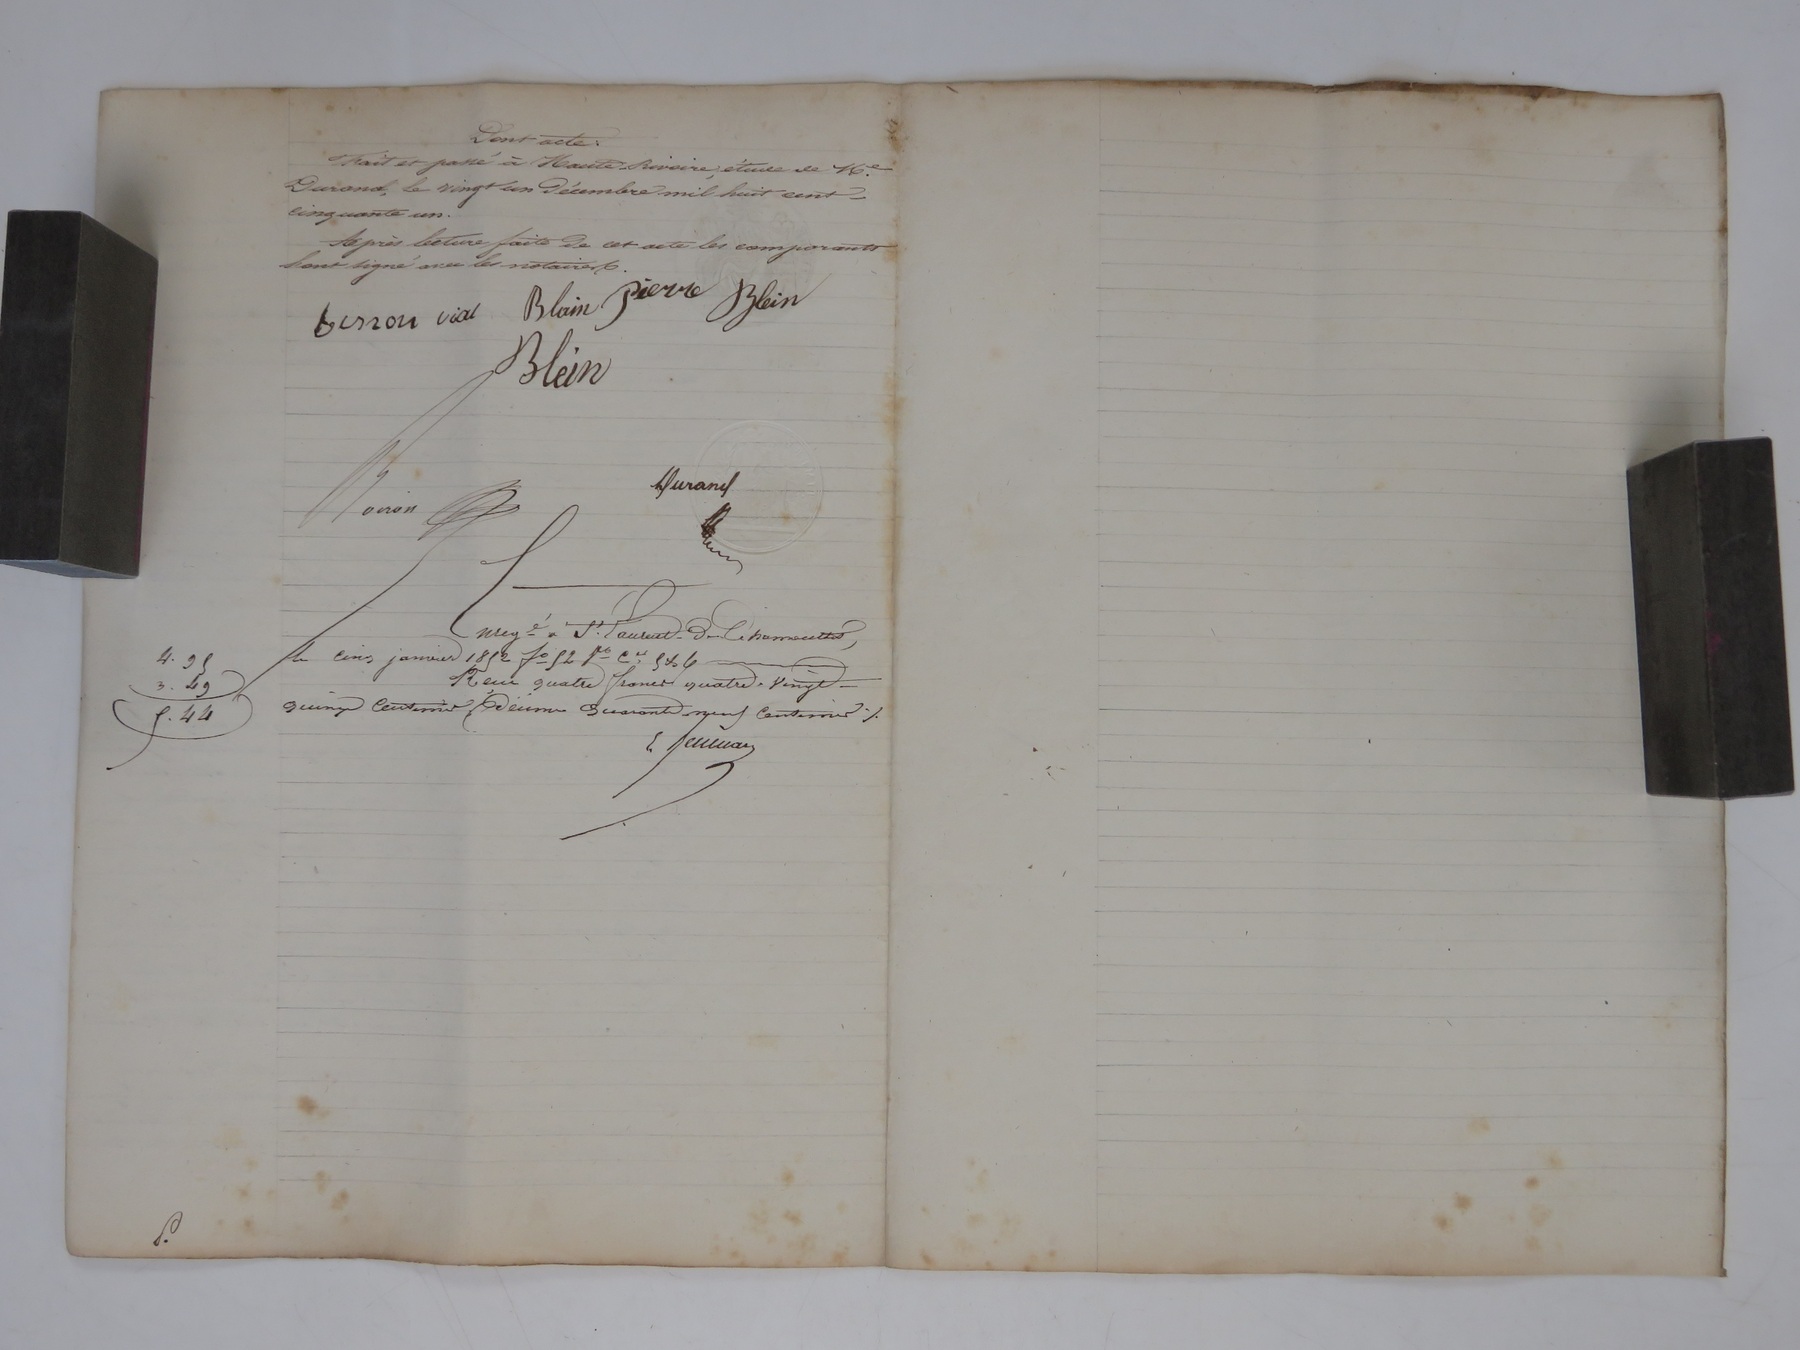 Dont acte.
Fait et passé à Haute Rivoire, étude de Me
Durand, le vingt un Décembre mil huit cent
cinquante un.
Après lecture faite de cet acte les comparants
l'ont signé avec les notaires.
besson vial Blain pierre Blein
Blein
Durand
Enregé à St Laurent-De-Chamousset,
le cinq janvier 1852 fo 52
Reçu quatre francs quatre-vingt-
quinze Centimes, décime quarante neuf Centimes
4. 95
. 49
5. 44